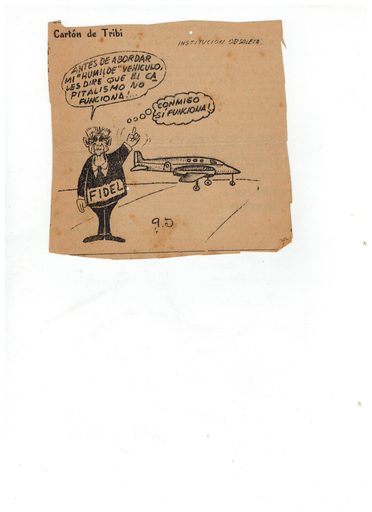 Cartón de Tribi
INSTITUCIÓN OBSOLETA.
ANTES DE ABORDAR
MI "HUMILDE" VEHICULO,
LES DIRE QUE EL CA
PITALISMO NO
FUNCIONA!...
CONMIGO
SI FUNCIONA!
FIDEL